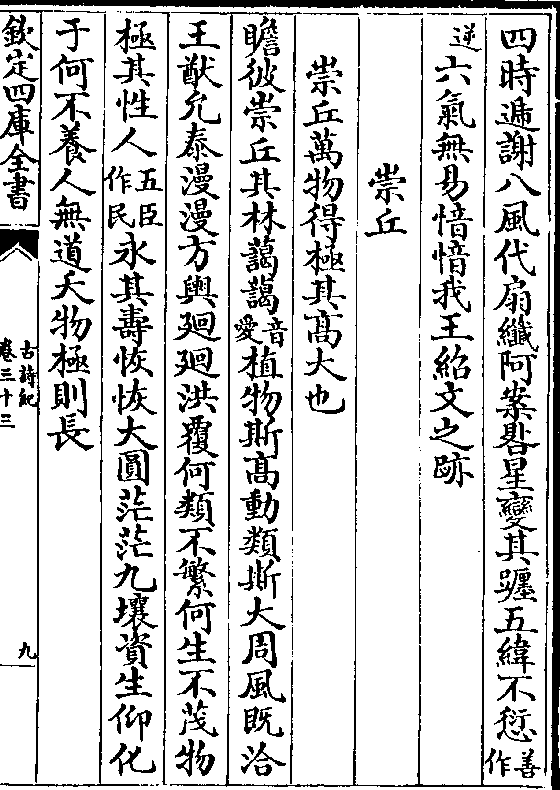 四時遞謝八風代扇纖阿案晷星變其躔五緯不愆善作
逆六氣無易愔愔我王紹文之跡
崇丘
崇丘萬物得極其髙大也
瞻彼崇丘其林藹藹音愛植物斯髙動類斯大周風既洽
王猷允泰漫漫方輿廻廻洪覆何類不繁何生不茂物
極其性人五臣作民永其壽恢恢大圓茫茫九壤資生仰化
于何不養人無道夭物極則長
欽定四庫全書
古詩紀
卷三十三
九